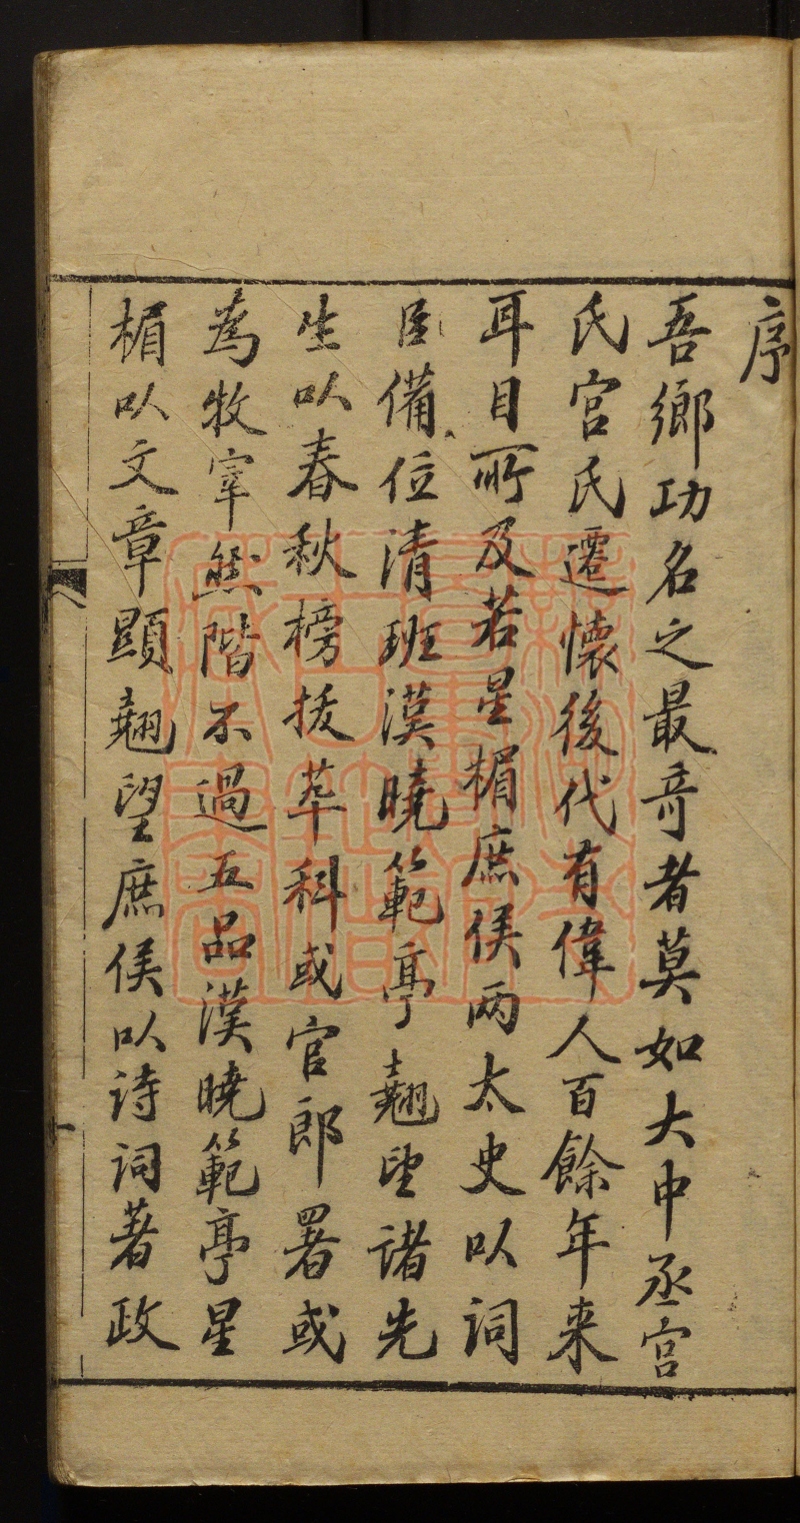 序
吾鄉功名之最奇者莫如大中丞宫
氏宫氏遷懷後代有偉人百餘年来
耳目所及若星楣庶侯兩太史以詞
臣備位清班漢曉範亭翹望諸先
生以春秋榜拔萃科或官郎署或
為牧宰然階不過五品漢曉範亭星
楣以文章顯翹望庶侯以诗詞著政